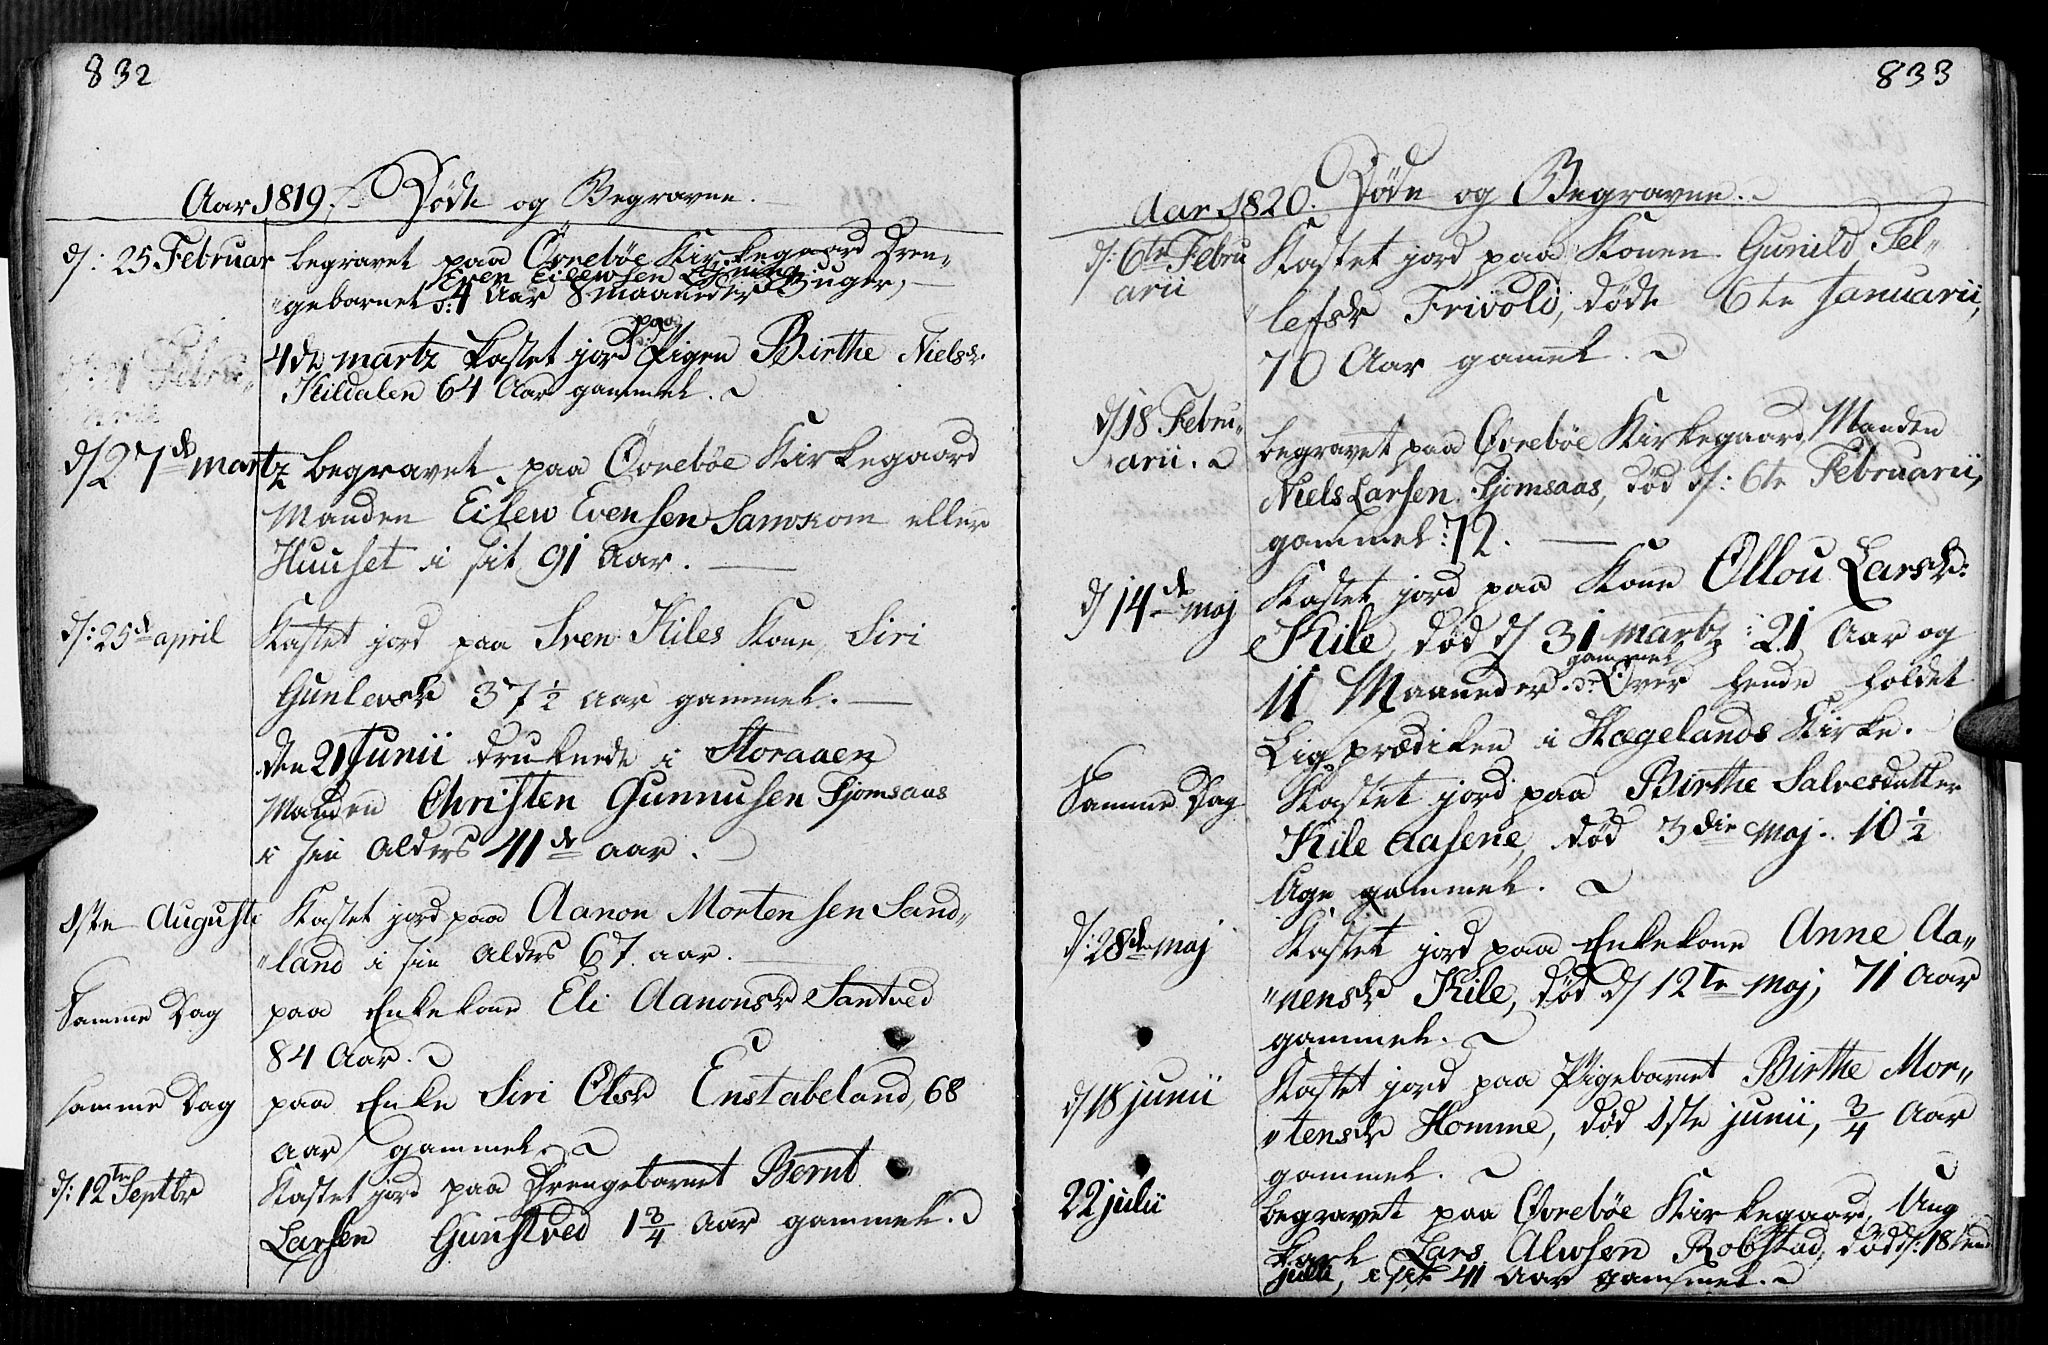 832
Aar 1819. Døde og Begravne.
d: 25 Februar begravet paa Øvrebøe Kirkegaard Dren„
Even Eilewsen
„gebarnet 4 Aar 8 maaneder 3 Uger,
paa
4de martz Kastet jord Pigen Birthe Nielsdr
Kildalen 64 Aar gammel.
d/27de martz begravet paa Øvrebøe Kirkegaard
Manden Eilew Evensen Samkom eller
Huuset i sit 91 Aar.
d: 25de april Kastet jord paa Sven Kiles Kone, Siri
Gunlevsdr 37 1/2 Aar gammel.
den 21 Junii druknede i Storaaen
Manden Christen Gunnusen Fjomsaas
i sin Alders 41de aar.
1ste Augusti Kastet jord paa Aanon Mortensen Sand„
„land i sin Alders 67 aar.
Samme Dag paa Enkekone Eli Aanonsdr Santved
84 Aar.
samme Dag paa Enke Siri Olsdr Enstabeland, 68
aar gammel.
d: 12te Septbr Kastet jord paa Drengebarnet Bernt
Larsen Gunstved 1 3/4 Aar gammel.
833
Aar 1820. Døde og Begravne.
d: 6te Febru Kastet jord paa Konen Gunild Tel„
arii „lefsdr Frivold, døde 6te Januarii,
70 Aar gamel.
d/18 Febru„ begravet paa Øvrebøe Kirkegaard, Manden
arii. Niels Larsen Fjomsaas, død d: 6te Februarii,
gammel: 72.
d/14de maj Kastet jord paa Kone Ollou Larsdr:
Kile, død d/ 31 martz 21 Aar og
gammel
11 Maaneder. Over hende holdet
Ligprædiken i Hægelands Kirke.
Samme Dag Kastet jord paa Birthe Salvesdatter
Kile Aasene, død 3die Maj. 10 1/2
Uge gammel.
d: 28de maj Kastet jord paa Enkekone Anne Aa„
„nensdr Kile, død d/ 12te Maj, 71 Aar
gammel.
d/18 junii Kastet jord paa Pigebarnet Birthe Mor„
„tensdr Homme, død 1ste junii, 3/4 Aar
gammel.
22 julii begravet paa Øvrebøe Kirkegaard, Ung
Karl Lars Alwsen Robstad, død d: 18
julii, i sit 41 Aar gammel.